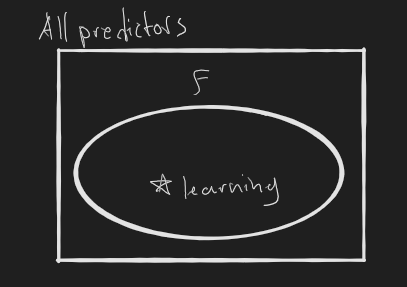 All predictors
F
☆ learning